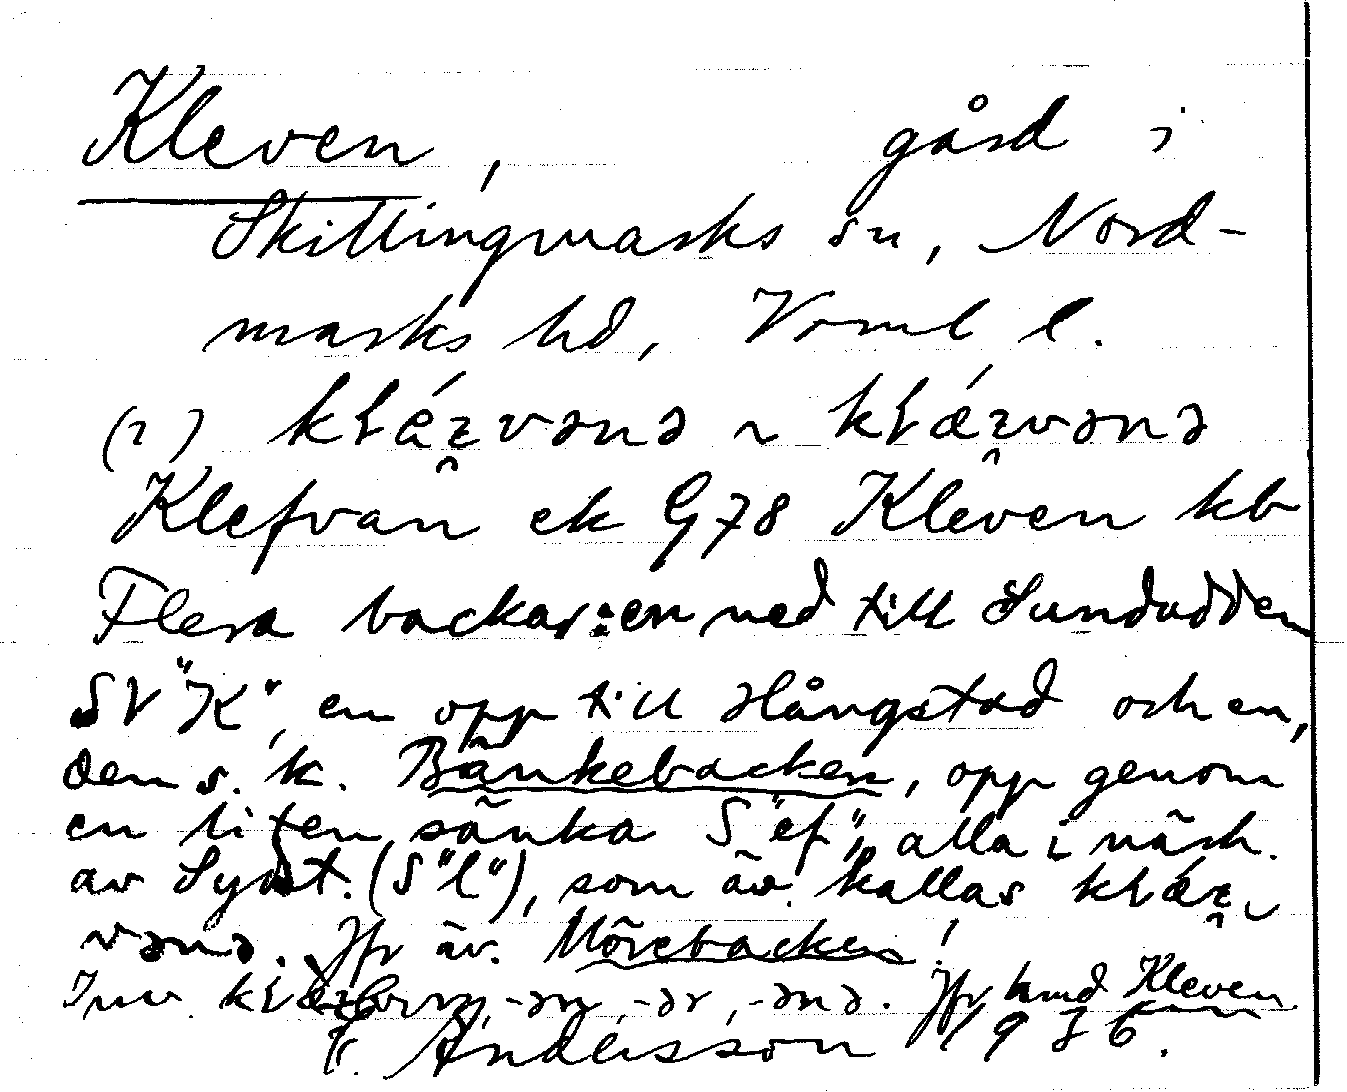 Kleven, gård i
Skillingmarks sn, Nord-
marks hd, Vrml l.
(2) klǽʒvənə ~ klǽʒvənə
Klefvan ek G78 Kleven kb
Flera backar: en ned till Sundudden
SV "K", en opp till Hångstad och en,
den s. k. Bänkebacken, opp genom
en liten sänka S "ef", alla i närh.
av (S "l"), som äv. kallas
vənə. Jfr äv. Mörebacken!
Inv. -ər, -ənə. Jfr hmd Kleven.
F. Andersson 1936.